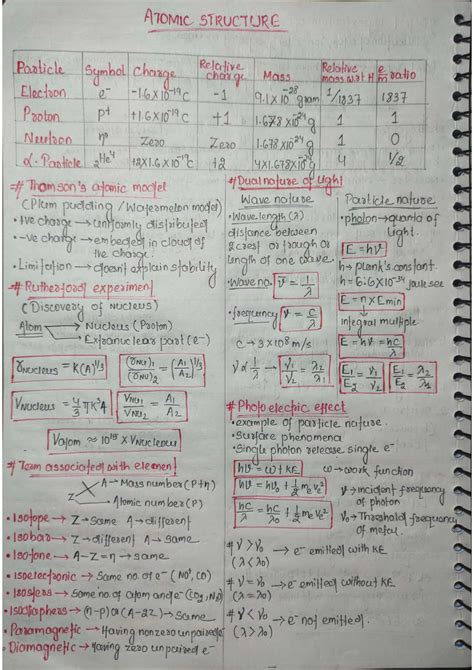 ATOMIC STRUCTURE
Particle Symbol Charge Relative charge Mass Relative mass wrt H e/m ratio
Electron e⁻ -1.6×10⁻¹⁹C -1 9.1×10⁻²⁸ gram 1/1837 1837
Proton p⁺ +1.6×10⁻¹⁹C +1 1.678×10⁻²⁴g 1 1
Neutron n⁰ Zero Zero 1.678×10⁻²⁴g 1 0
α-Particle ₂He⁴ +2×1.6×10⁻¹⁹C +2 4×1.678×10⁻²⁴g 4 1/2
# Thomson's atomic model
(Plum pudding / Watermelon model)
• +ve charge → uniformly distributed
• -ve charge → embeded in cloud of
the charge.
• Limitation → doesn't explain stability
# Rutherford experiment
(Discovery of Nucleus)
Atom → Nucleus (Proton)
→ Extranuclear part (e⁻)
r Nucleus = K(A)^1/3
(r Nu)₁/(r Nu)₂ = (A₁/A₂)^1/3
V Nucleus = 4/3 π K³A
V Nu₁/V Nu₂ = A₁/A₂
V atom ≈ 10¹⁵ × V Nucleus
# Term associated with element
A → Mass number (P+n)
Z → Atomic number (P)
• Isotope → Z → Same A → different
• Isobar → Z → different A → Same
• Isotone → A-Z = n → same
• Isoelectronic → Same no. of e⁻
• Isosters → Same no. of atom and e⁻ (CO₂, N₂O)
• Isodiaphers → (n-p) or (A-2Z) → Same
• Paramagnetic → Having nonzero unpaired e⁻
• Diamagnetic → Having zero unpaired e⁻
# Dual nature of light
Wave nature
• Wavelength (λ)
distance between
2 crest or trough or
length of one wave
• Wave no. ν̄ = 1/λ
• frequency ν = c/λ
c → 3×10⁸ m/s
ν ∝ 1/λ → ν₁/ν₂ = λ₂/λ₁
Particle nature
• photon → quanta of
light.
E = hν
h → plank's constant.
h = 6.6×10⁻³⁴ joule sec
E = n × Emin
integral multiple
E = hν = hc/λ
E₁/E₂ = ν₁/ν₂
E₁/E₂ = λ₂/λ₁
# Photoelectric effect
• example of particle nature.
• Surface phenomena
• Single photon release single e⁻
hν = ω + KE ω → work function
hν = hν₀ + 1/2 mₑvₑ²
hc/λ = hc/λ₀ + 1/2 mₑvₑ²
ν → incident frequency
of photon
ν₀ → Threshold frequency
of metal.
# ν > ν₀ → e⁻ emitted with KE
(λ < λ₀)
# ν = ν₀ → e⁻ emitted without KE
(λ = λ₀)
# ν < ν₀ → e⁻ not emitted.
(λ > λ₀)